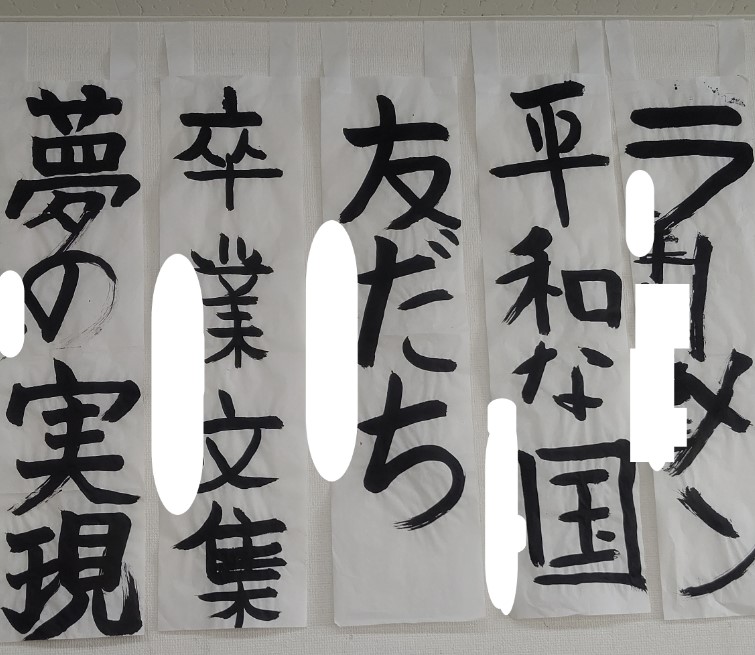 ラーメン
平和な国
友だち
卒業文集
夢の実現